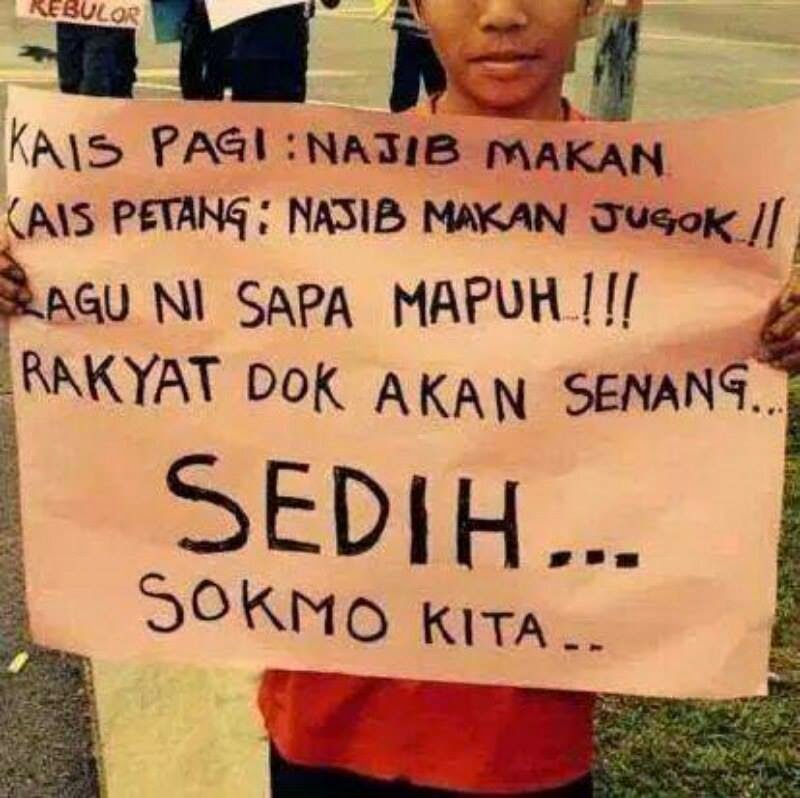 REBULOR
KAIS PAGI : NAJIB MAKAN
KAIS PETANG : NAJIB MAKAN JUGOK..!!
LAGU NI SAPA MAPUH..!!!
RAKYAT DOK AKAN SENANG...
SEDIH...
SOKMO KITA...